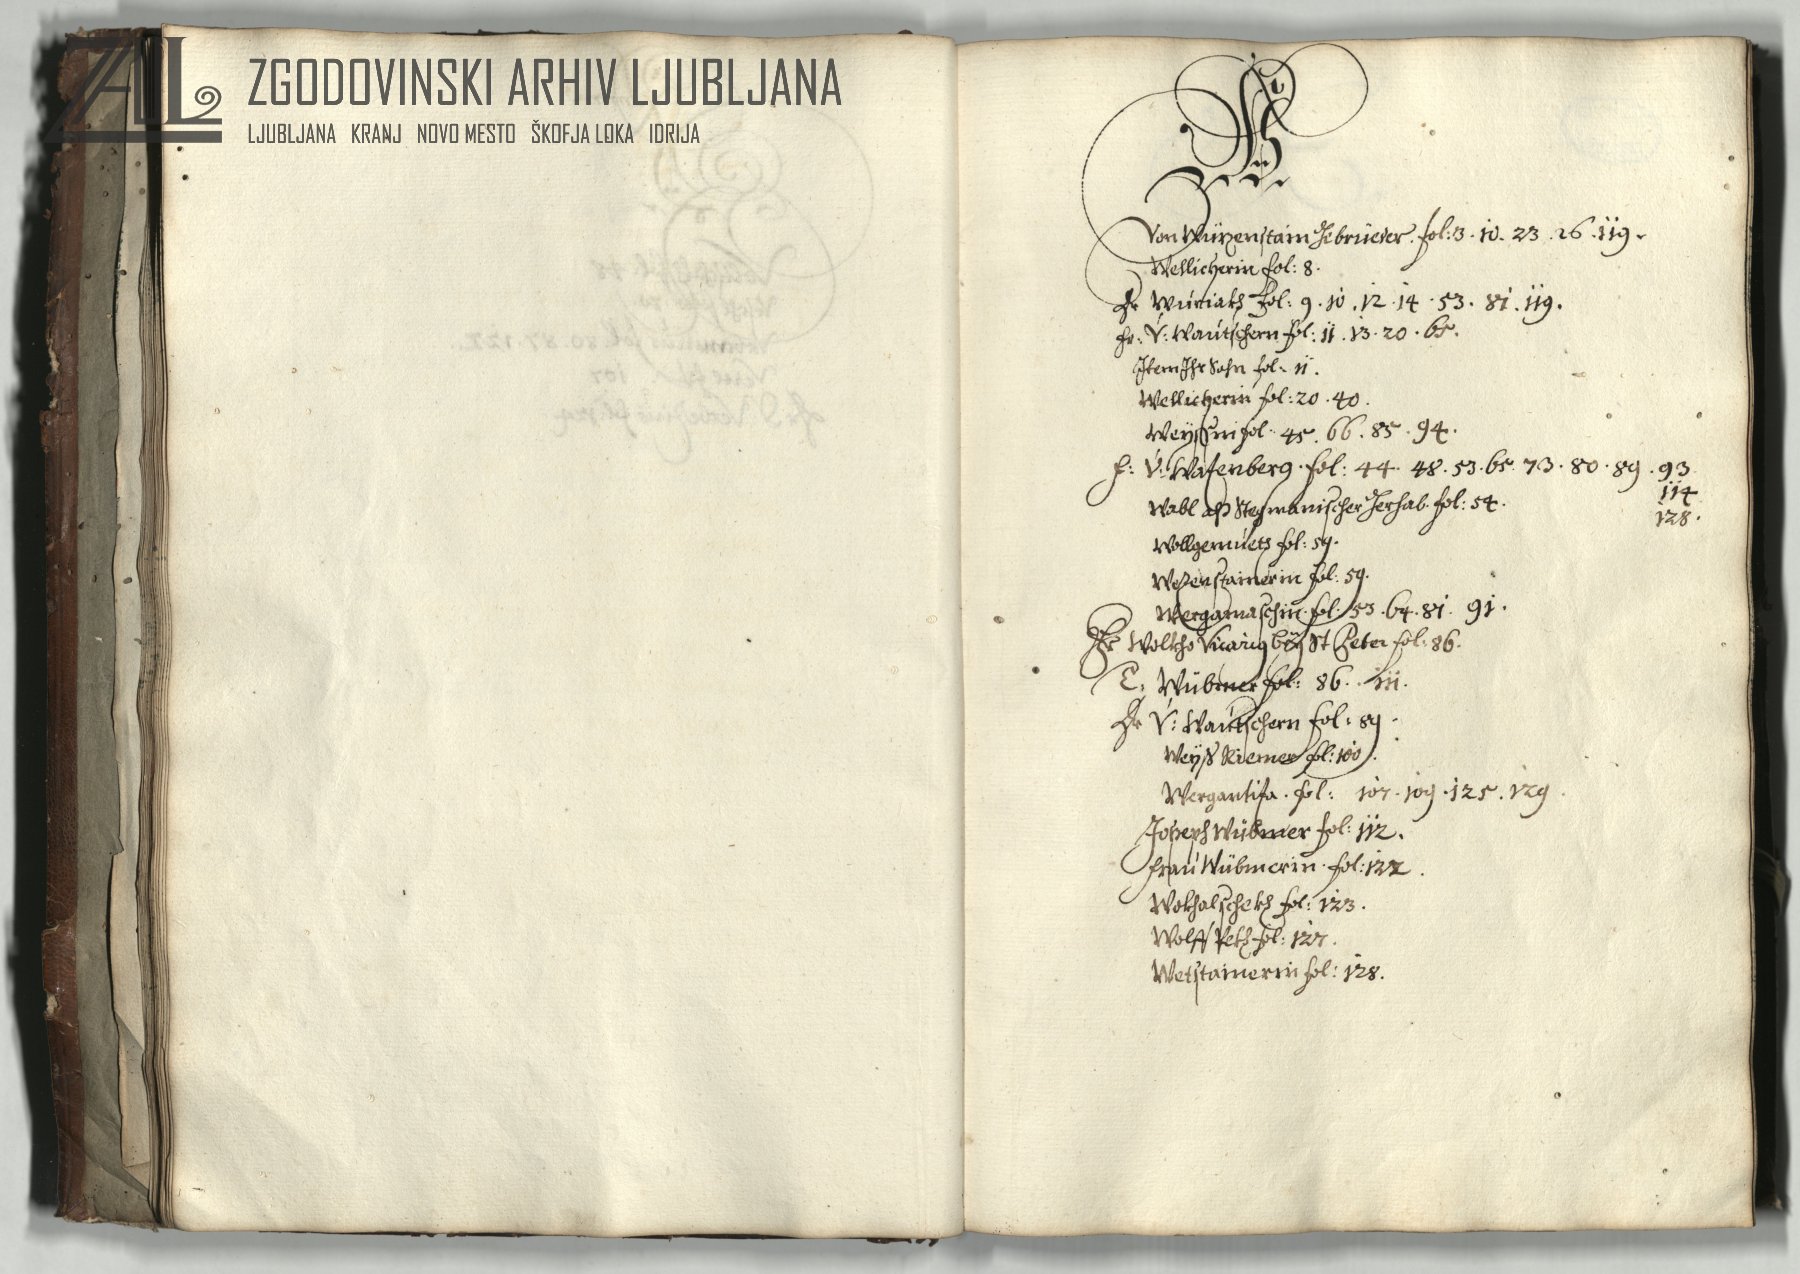 ZGODOVINSKI ARHIV LJUBLJANA
LJUBLJANA KRANJ NOVO MESTO ŠKOFJA LOKA IDRIJA
W
Von Wüzenstain Gebrüeder. fol: 3. 10. 23. 26. 119.
Wellicherin fol: 8.
Hr Wuriakh fol: 9. 10. 12. 14. 53. 81. 119.
Fr: V: Waútschern fol: 11. 13. 20. 65.
Item Ihr Sohn fol: 11.
Wellicherin fol: 20. 40.
fol: 45. 66. 85. 94.
H: V: Wasenberg. fol: 44. 48. 53. 65. 73. 80. 89. 93
114
128.
Wabl alß Stegmanischer Gerhab. fol: 54.
Wollgemuets fol: 59.
Wezenstainerin fol: 59.
Wergamaschin. fol: 53. 64. 81. 91.
Hr Wolkho Vicarig bey St Peter fol: 86.
E: Wübmer fol: 86. 111.
Hr V: Waútschern fol: 89.
Weyß Riemer fol: 100.
Wergantisa. fol: 107. 109. 125. 129
Joseph Wübmer fol: 112.
Fraú Wübmerin. fol: 122.
Wokhalschekh fol: 123.
Wolff Pekh fol: 127.
Wetstainerin fol: 128.